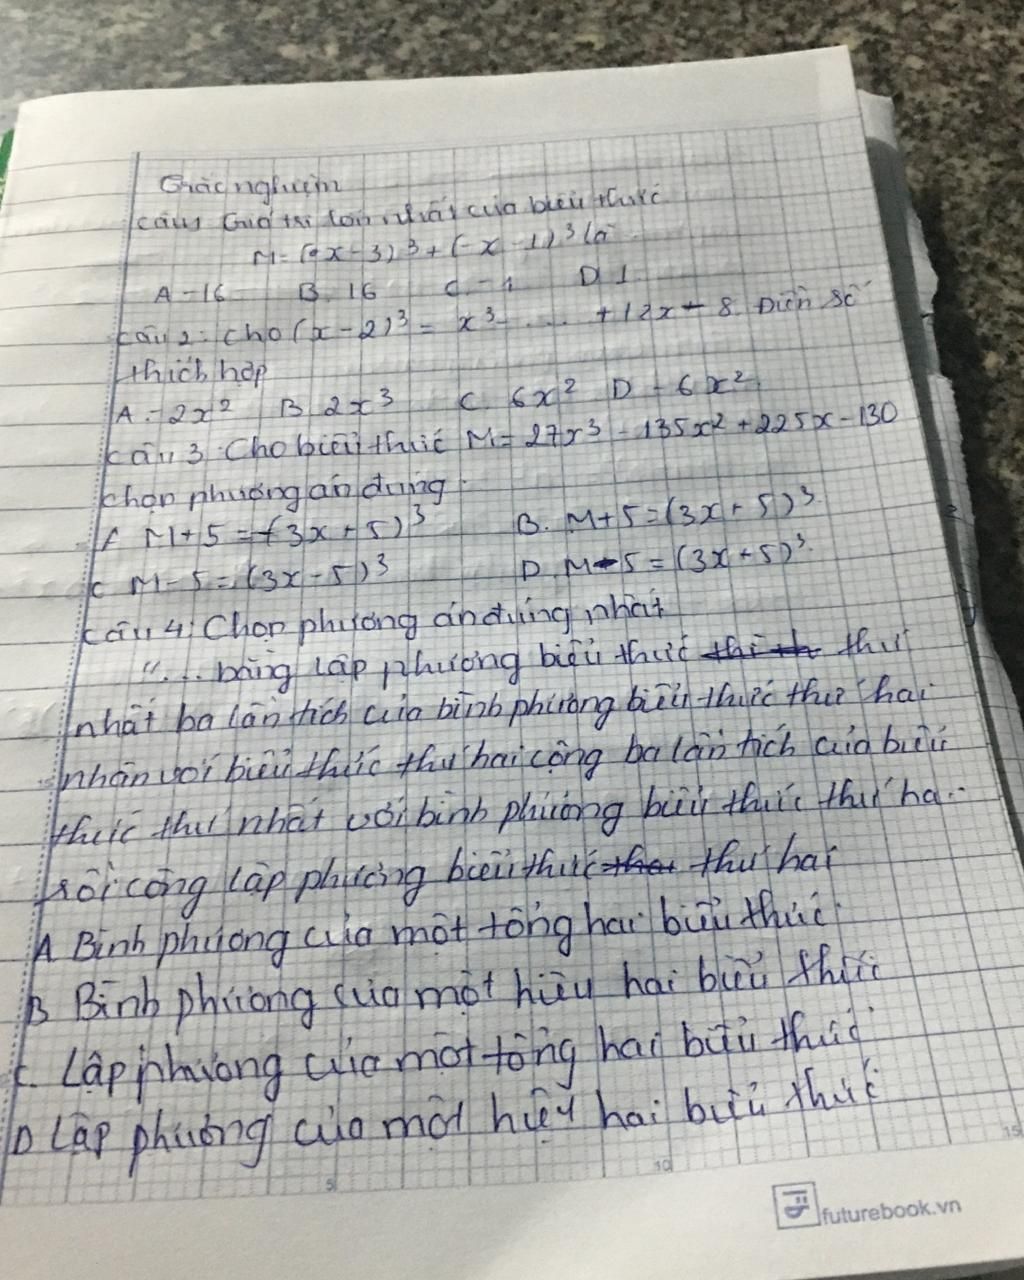 Trắc nghiệm
câu 1 Giá trị lớn nhất của biểu thức
M = (x - 3)³ + (-x - 1)³ là
A -16 B. 16 C -1 D 1
câu 2: cho (x - 2)³ = x³ - .... + 12x - 8. Điền số
thích hợp
A. -2x² B 2x³ C. 6x² D - 6x²
câu 3: Cho biểu thức M = 27x³ - 135x² + 225x - 130
chọn phương án đúng
A M + 5 = -(3x + 5)³ B. M + 5 = (3x + 5)³
C M - 5 = (3x - 5)³ D. M - 5 = (3x + 5)³
câu 4: Chọn phương án đúng nhất
"... bằng lập phương biểu thức thứ
nhất ba lần tích của bình phương biểu thức thứ hai
nhân với biểu thức thứ hai cộng ba lần tích của biểu
thức thứ nhất với bình phương biểu thức thứ hai
rồi cộng lập phương biểu thức thứ hai
A Bình phương của một tổng hai biểu thức
B Bình phương của một hiệu hai biểu thức
C. Lập phương của một tổng hai biểu thức
D Lập phương của một hiệu hai biểu thức
5 10 15
futurebook.vn